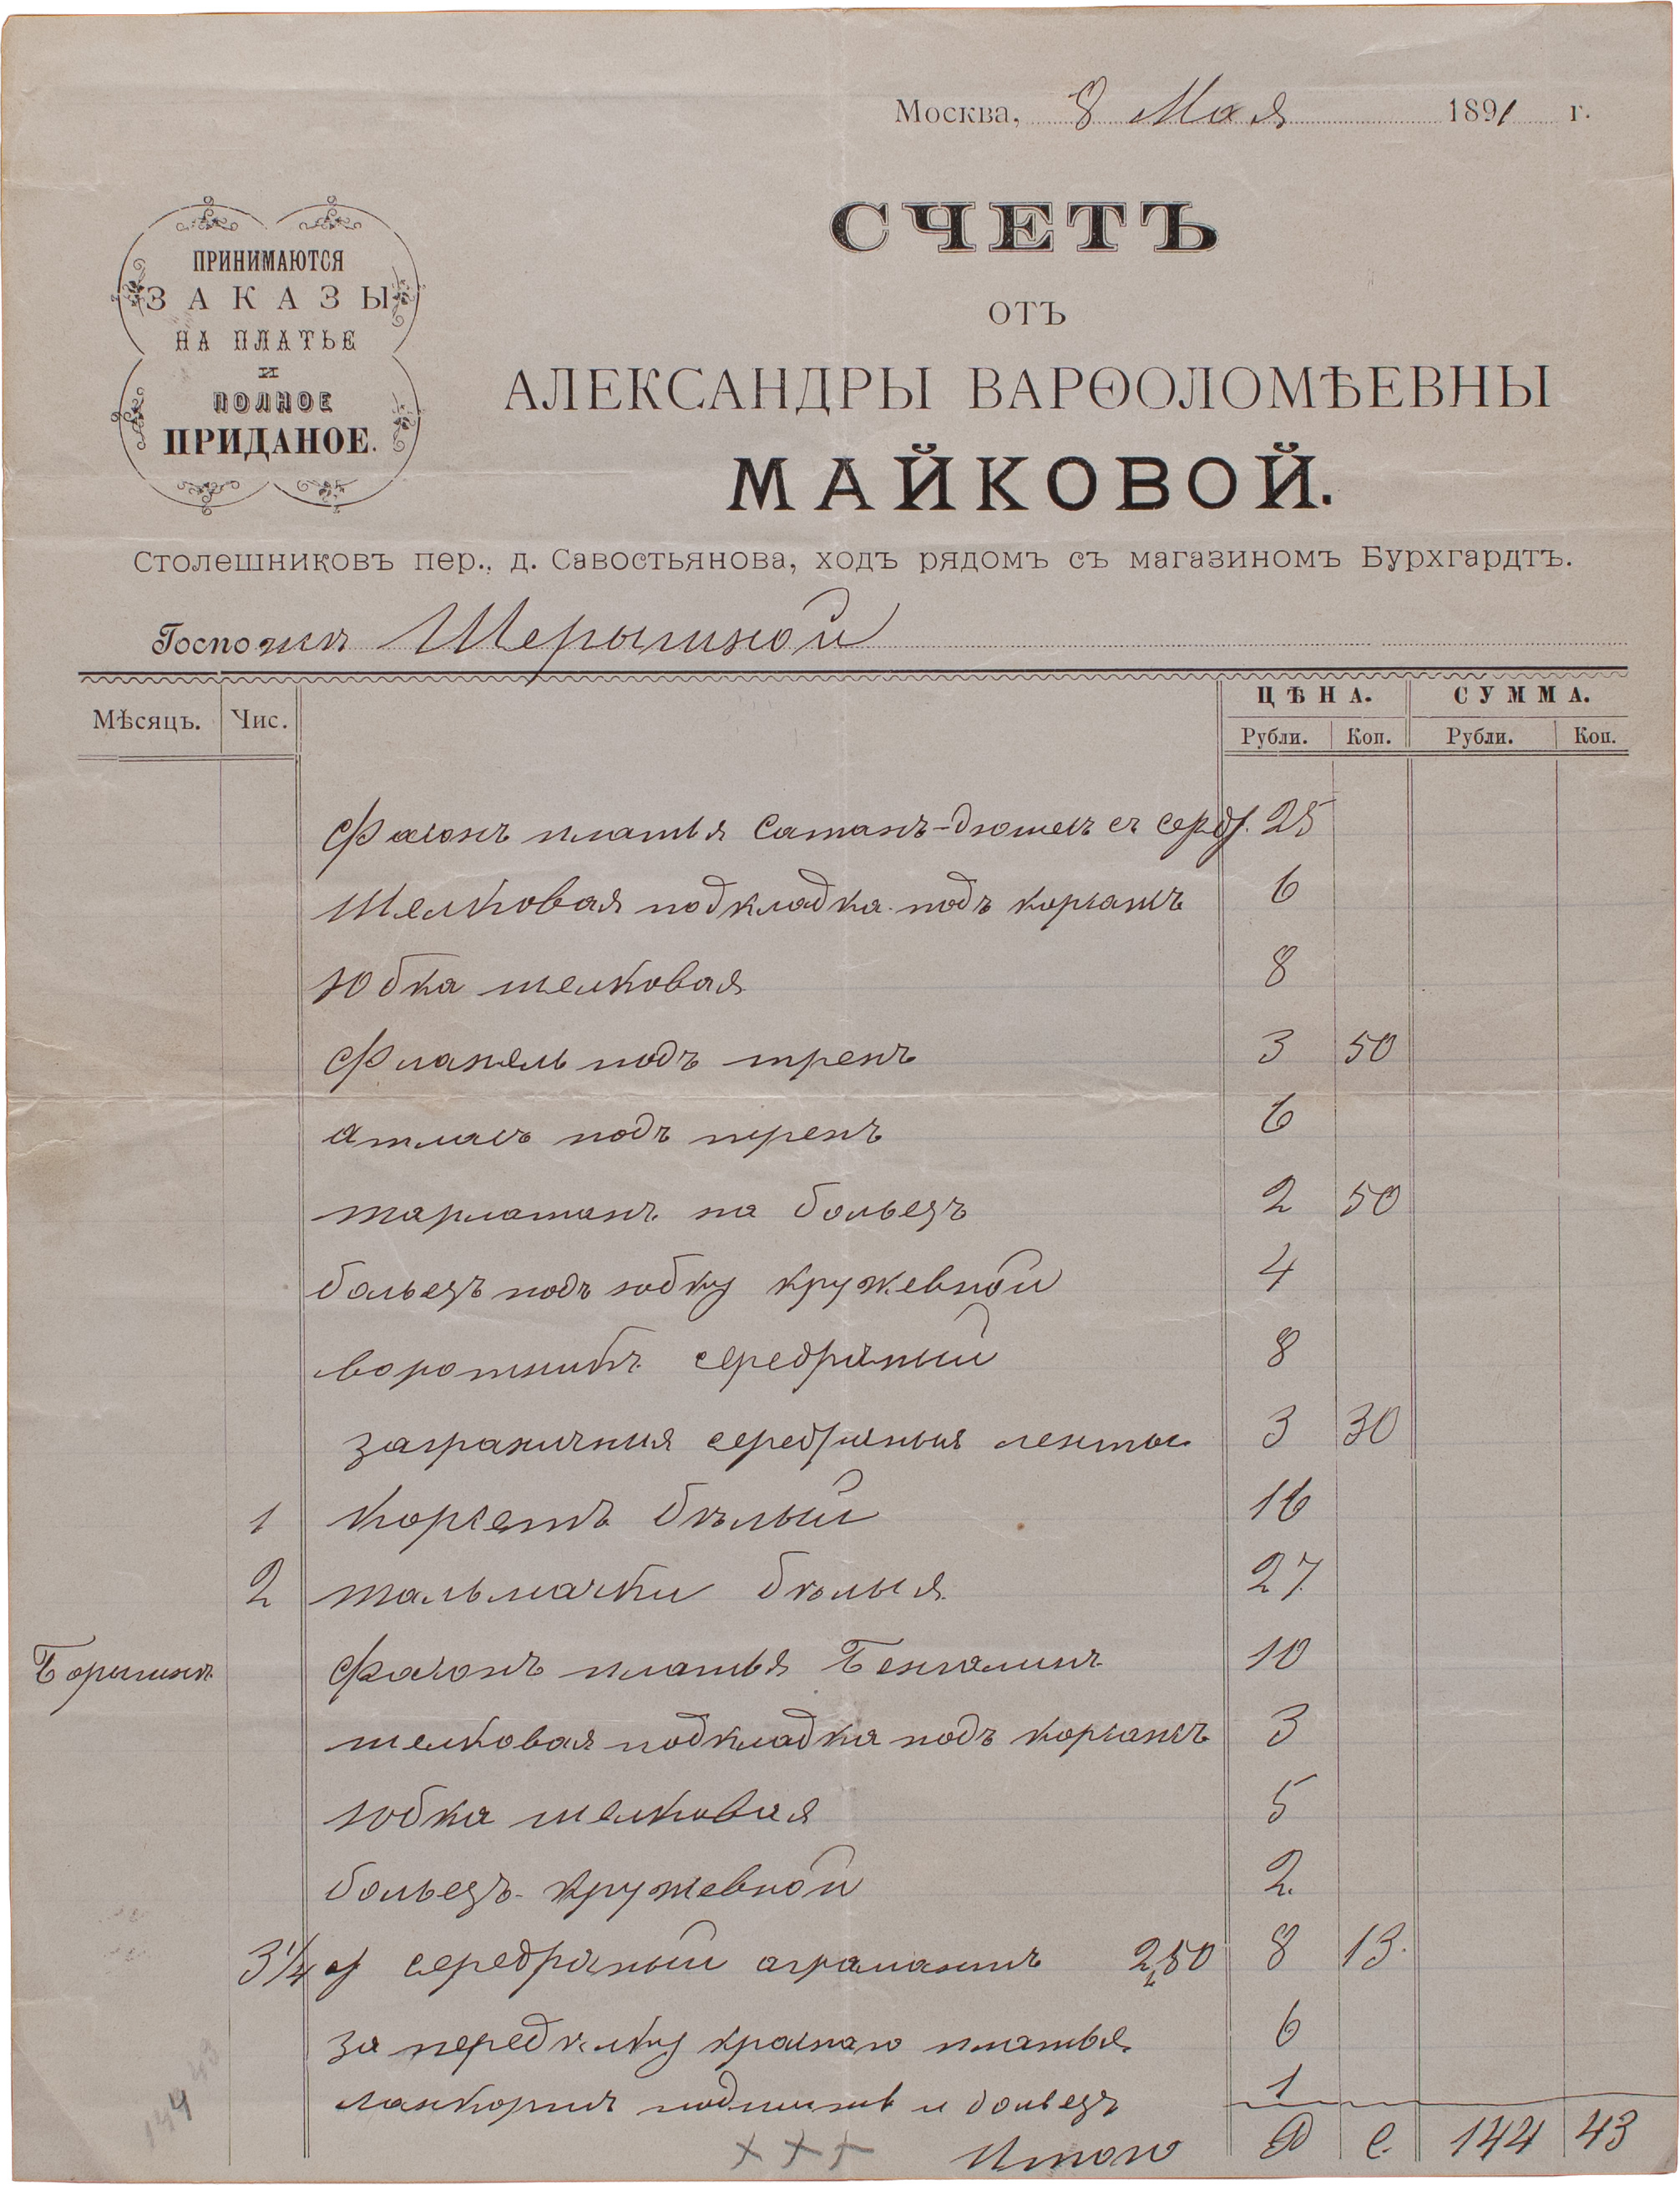 Москва, 8 Мая 1891 г.
ПРИНИМАЮТСЯ
ЗАКАЗЫ
НА ПЛАТЬЕ
И
ПОЛНОЕ
ПРИДАНОЕ.
СЧЕТЪ
ОТЪ
АЛЕКСАНДРЫ ВАРѲОЛОМѢЕВНЫ
МАЙКОВОЙ.
Столешниковъ пер., д. Савостьянова, ходъ рядомъ съ магазиномъ Бурхгардтъ.
Госпожѣ
Мѣсяцъ. Чис. ЦѢНА. СУММА.
Рубли. Коп. Рубли. Коп.
Фасонъ платья Сатанъ-дюшесъ съ 25
Шелковая подкладка подъ корсажъ 6
Юбка шелковая 8
Фланель подъ тренъ 3 50
атласъ подъ тренъ 6
тарлатанъ на больезъ 2 50
больезъ подъ юбку кружевной 4
воротникъ серебряный 8
заграничныя серебряныя ленты 3 30
1 Корсетъ бѣлый 16
2 тальмачки бѣлыя 27
Фасонъ платья Бенгалинъ 10
шелковая подкладка подъ корсажъ 3
юбка шелковая 5
больезъ кружевной 2
3 1/4 серебряный аграмантъ 2,50 8 13
за передѣлку краснаго платья 6
подшить и больезъ 1
Итого Р С. 144 43
144 43